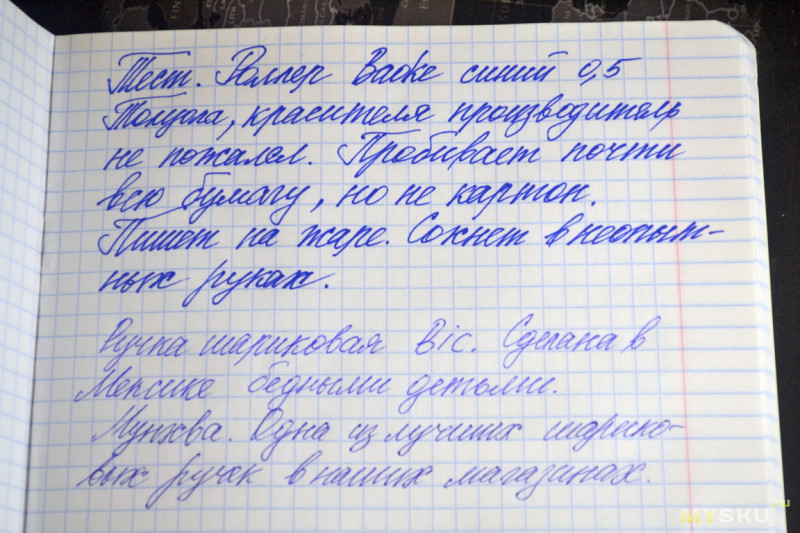 Тест. Роллер Baoke синий 0,5
Толуола, красителя производитель
не пожалел. Пробивает почти
всю бумагу, но не картон.
Пишет на жаре. Сохнет в неопыт-
ных руках.
Ручка шариковая Bic. Сделана в
Мексике бедными детьми.
Мунхва. Одна из лучших шарико-
вых ручек в наших магазинах.
MYSKU.ru